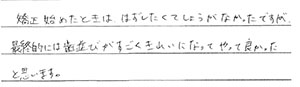 矯正始めたときは、はずしたくてしょうがなかったですが、
最終的には歯並びがすごくきれいになってやって良かった
と思います。